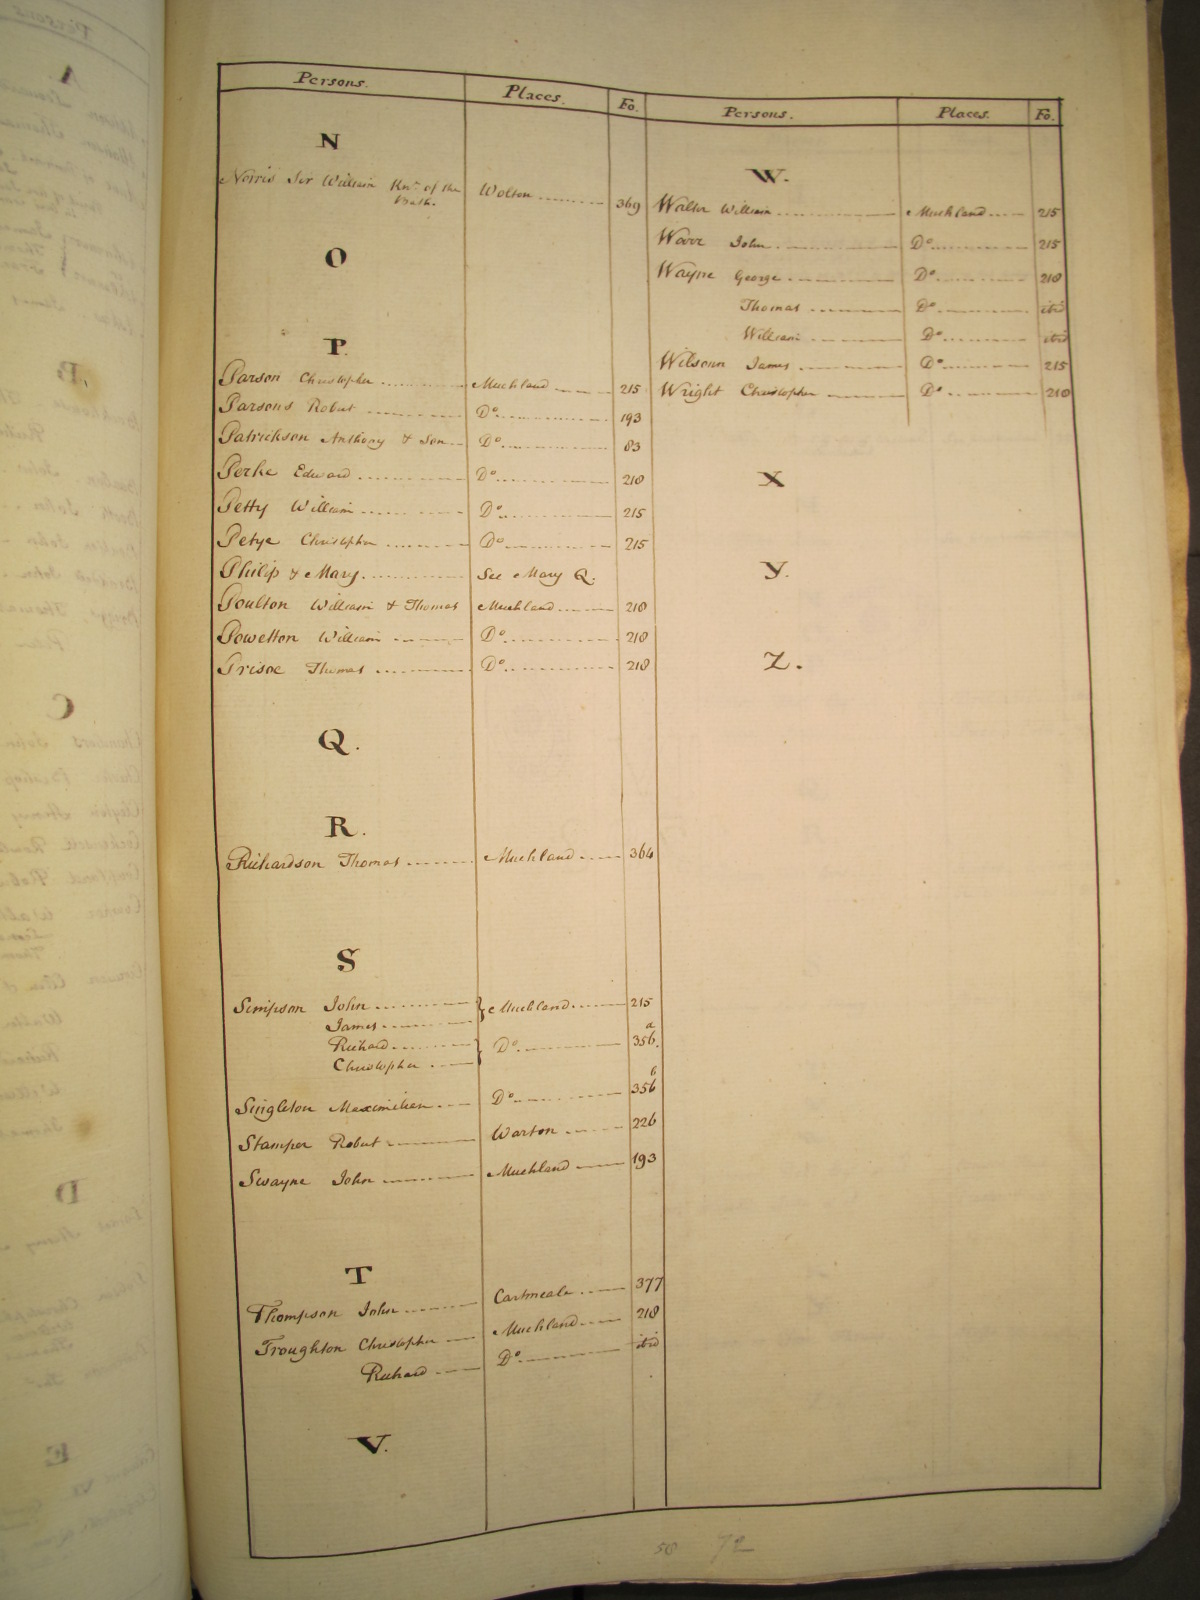 Persons. Places. Fo.
N
Norris Sir William Knt. of the Wolton 369
Bath.
O
P.
Parson Christopher Muchland 215
Parsons Robert Do. 193
Patrickson Anthony & Son Do. 83
Perke Edward Do. 210
Petty William Do. 215
Petye Christopher Do. 215
Philip & Mary. See Mary Q.
Poulton William & Thomas Muchland 210
Powetton William Do. 210
Prisoe Thomas Do. 210
Q.
R.
Richardson Thomas Muchland 364
S
Simpson John } Muchland 215
James
Richard } Do. 356.a
Christopher
Singleton Maximilian Do. 356 b
Stamper Robert Warton 226
Swayne John Muchland 193
T
Thompson John Cartmeale 377
Troughton Christopher Muchland 210
Richard Do. ibid
V.
Persons. Places. Fo.
W.
Walter William Muchland 215
Warr John Do. 215
Wayne George Do. 210
Thomas Do. ibid
William Do. ibid
Wilsonn James Do. 215
Wright Christopher Do. 210
X
Y.
Z.
58 72